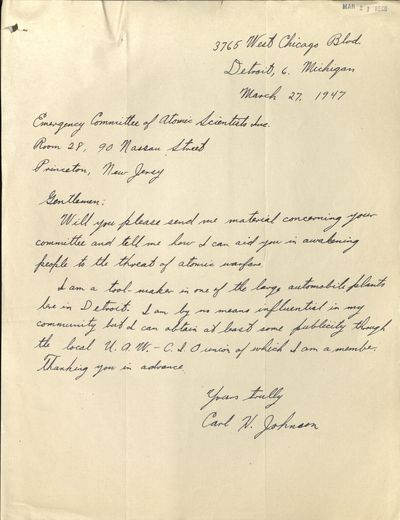 3765 West Chicago Blvd.
Detroit, 6. Michigan
March 27, 1947
Emergency Committee of Atomic Scientists Inc.
Room 28, 90 Nassau Street
Princeton, New Jersey
Gentlemen:
Will you please send me material concerning your
committee and tell me how I can aid you in awakening
people to the threat of atomic warfare.
I am a tool maker in one of the large automobile plants
here in Detroit. I am by no means influential in my
community but I can obtain at least some publicity though
the local U.A.W.-C.I.O union of which I am a member.
Thanking you in advance.
Yours trully
Carl H. Johnson